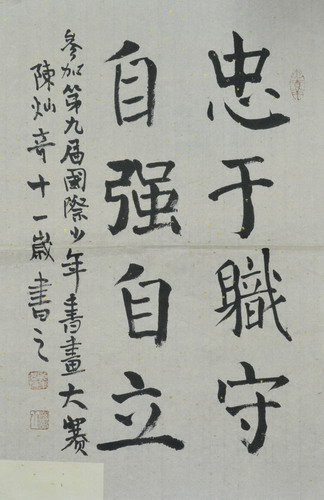 忠于職守
自强自立
参加第九届國際少年書畫大赛
陳灿奇十一歲書之